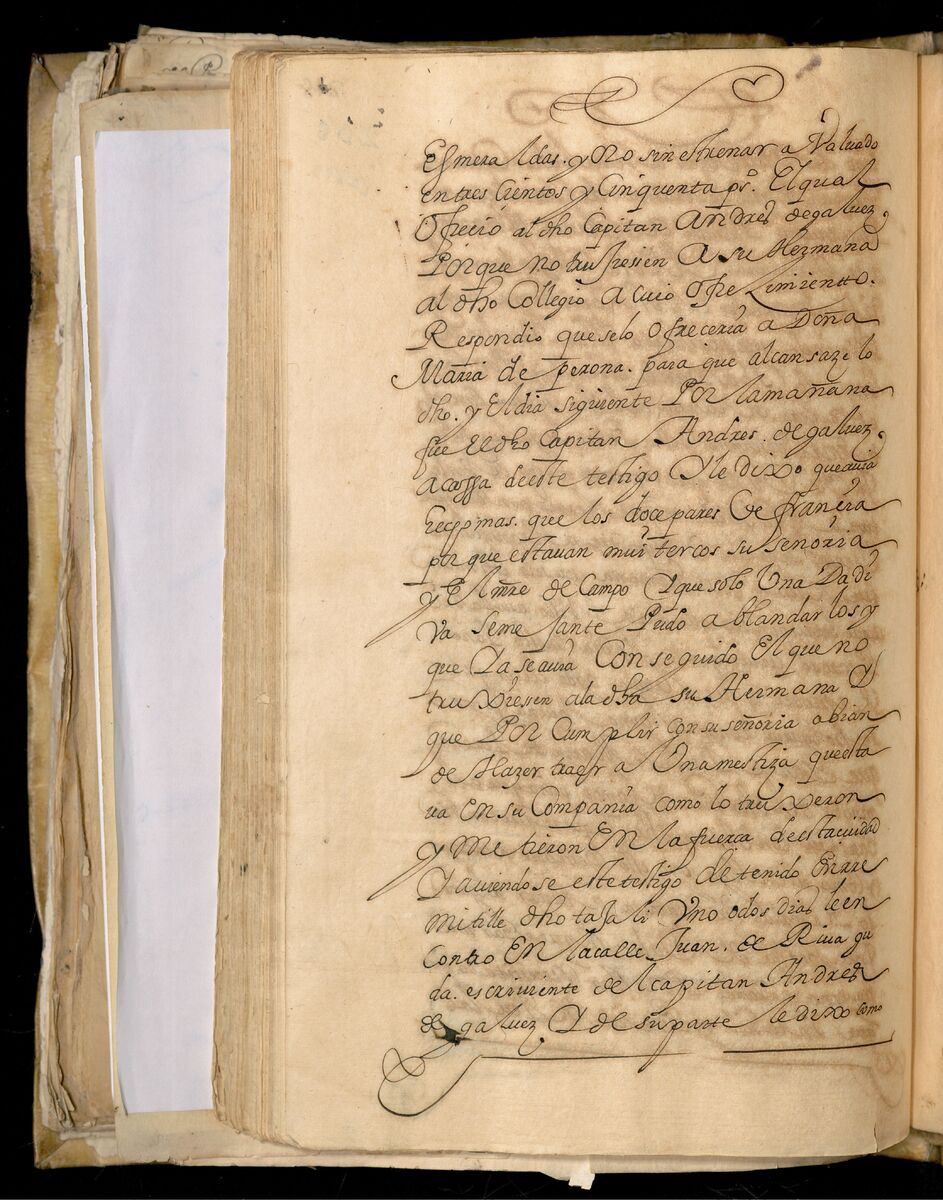 Esmeraldas. y No sin estrenar a Valuado
en tres Cientos y Cinquenta ps. El qual
Ofrecio al dho Capitan Andres de galuez,
Porque no truxessen A su Hermana
al dho Collegio A cuio Ofrecimientto.
Respondio que selo Ofreceria a Doña
Maria de perona. para que alcansaze lo
dho. y El dia siguiente Por la mañana
fue el dho Capitan Andres. de galuez,
a cassa de este testigo Y le dixo que auia
hecho mas. que los doce pares de francia
por que estauan mui tercos su señoria
y El mre de Campo Y que solo Una Dadi
va semejante Pudo ablandarlos y
que Ya se auia Conseguido El que no
truxesen a la dha su Hermana Y
que Por Cumplir con su señoria abian
de Hazer traer a Una mestiza que esta
ua en su Compania como lo truxeron
y metieron En la fuerca de esta ciudad
Y auiendose este testigo detenido En rre
mitille dho tasali Uno o dos dias le en
Contro En la calle Juan. de Riua gu
da. escriuiente del capitan Andres
de galuez Y de su parte le dixo como